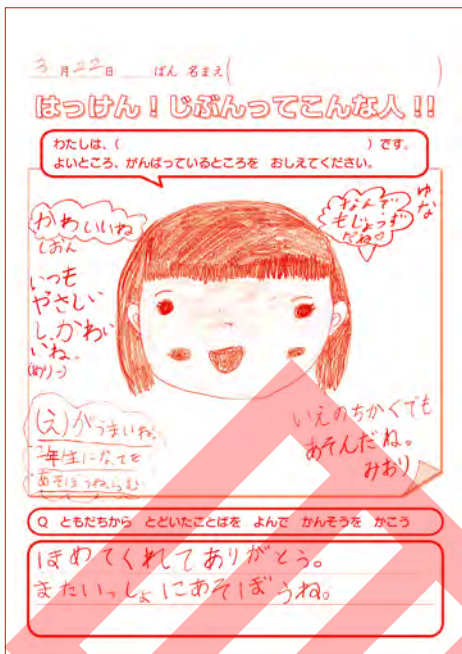 3月22日 ばん 名まえ( )
はっけん！じぶんってこんな人！！
わたしは、( )です。
よいところ、がんばっているところを おしえてください。
かわいいね
しおん
いつも
やさしい
し、かわい
いね。
(めりー)
なんで
もじょうず
だね♡
ゆな
(え)がうまいね。
2年生になっても
あそぼうね。
いえのちかくでも
あそんだね。
みおり
Q ともだちから とどいたことばを よんで かんそうを かこう
ほめてくれてありがとう。
またいっしょにあそぼうね。